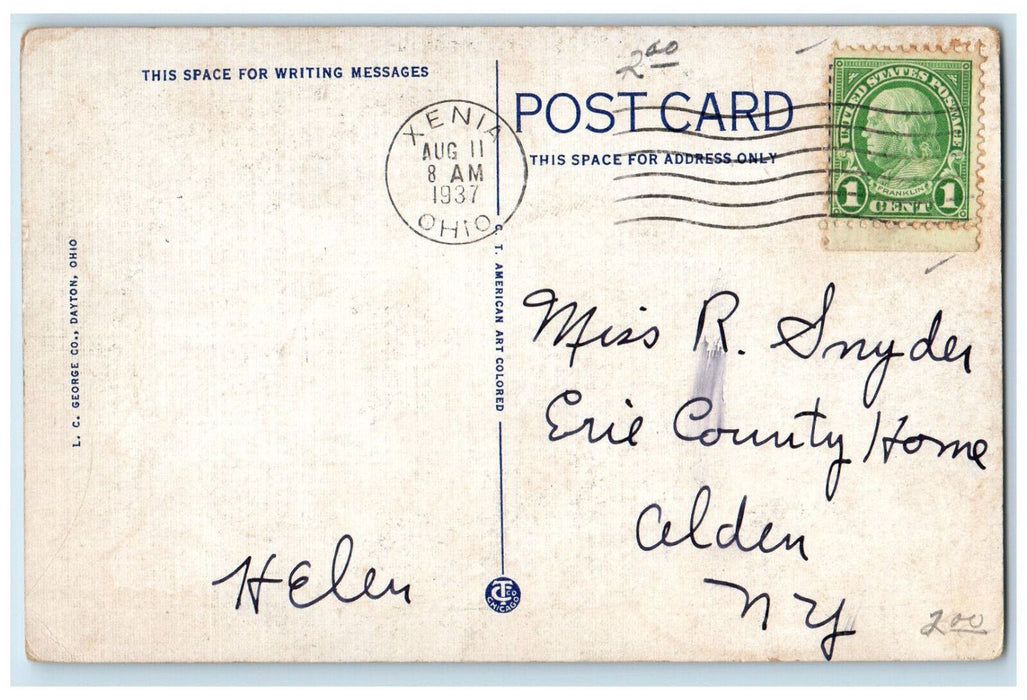 THIS SPACE FOR WRITING MESSAGES
L. C. GEORGE CO., DAYTON, OHIO
Helen
XENIA
AUG 11
8 AM
1937
OHIO
C. T. AMERICAN ART COLORED
CHICAGO
POST CARD
THIS SPACE FOR ADDRESS ONLY
2 00
UNITED STATES POSTAGE
FRANKLIN
1 CENT 1
Miss R. Snyder
Erie County Home
Alden
NY
2 00